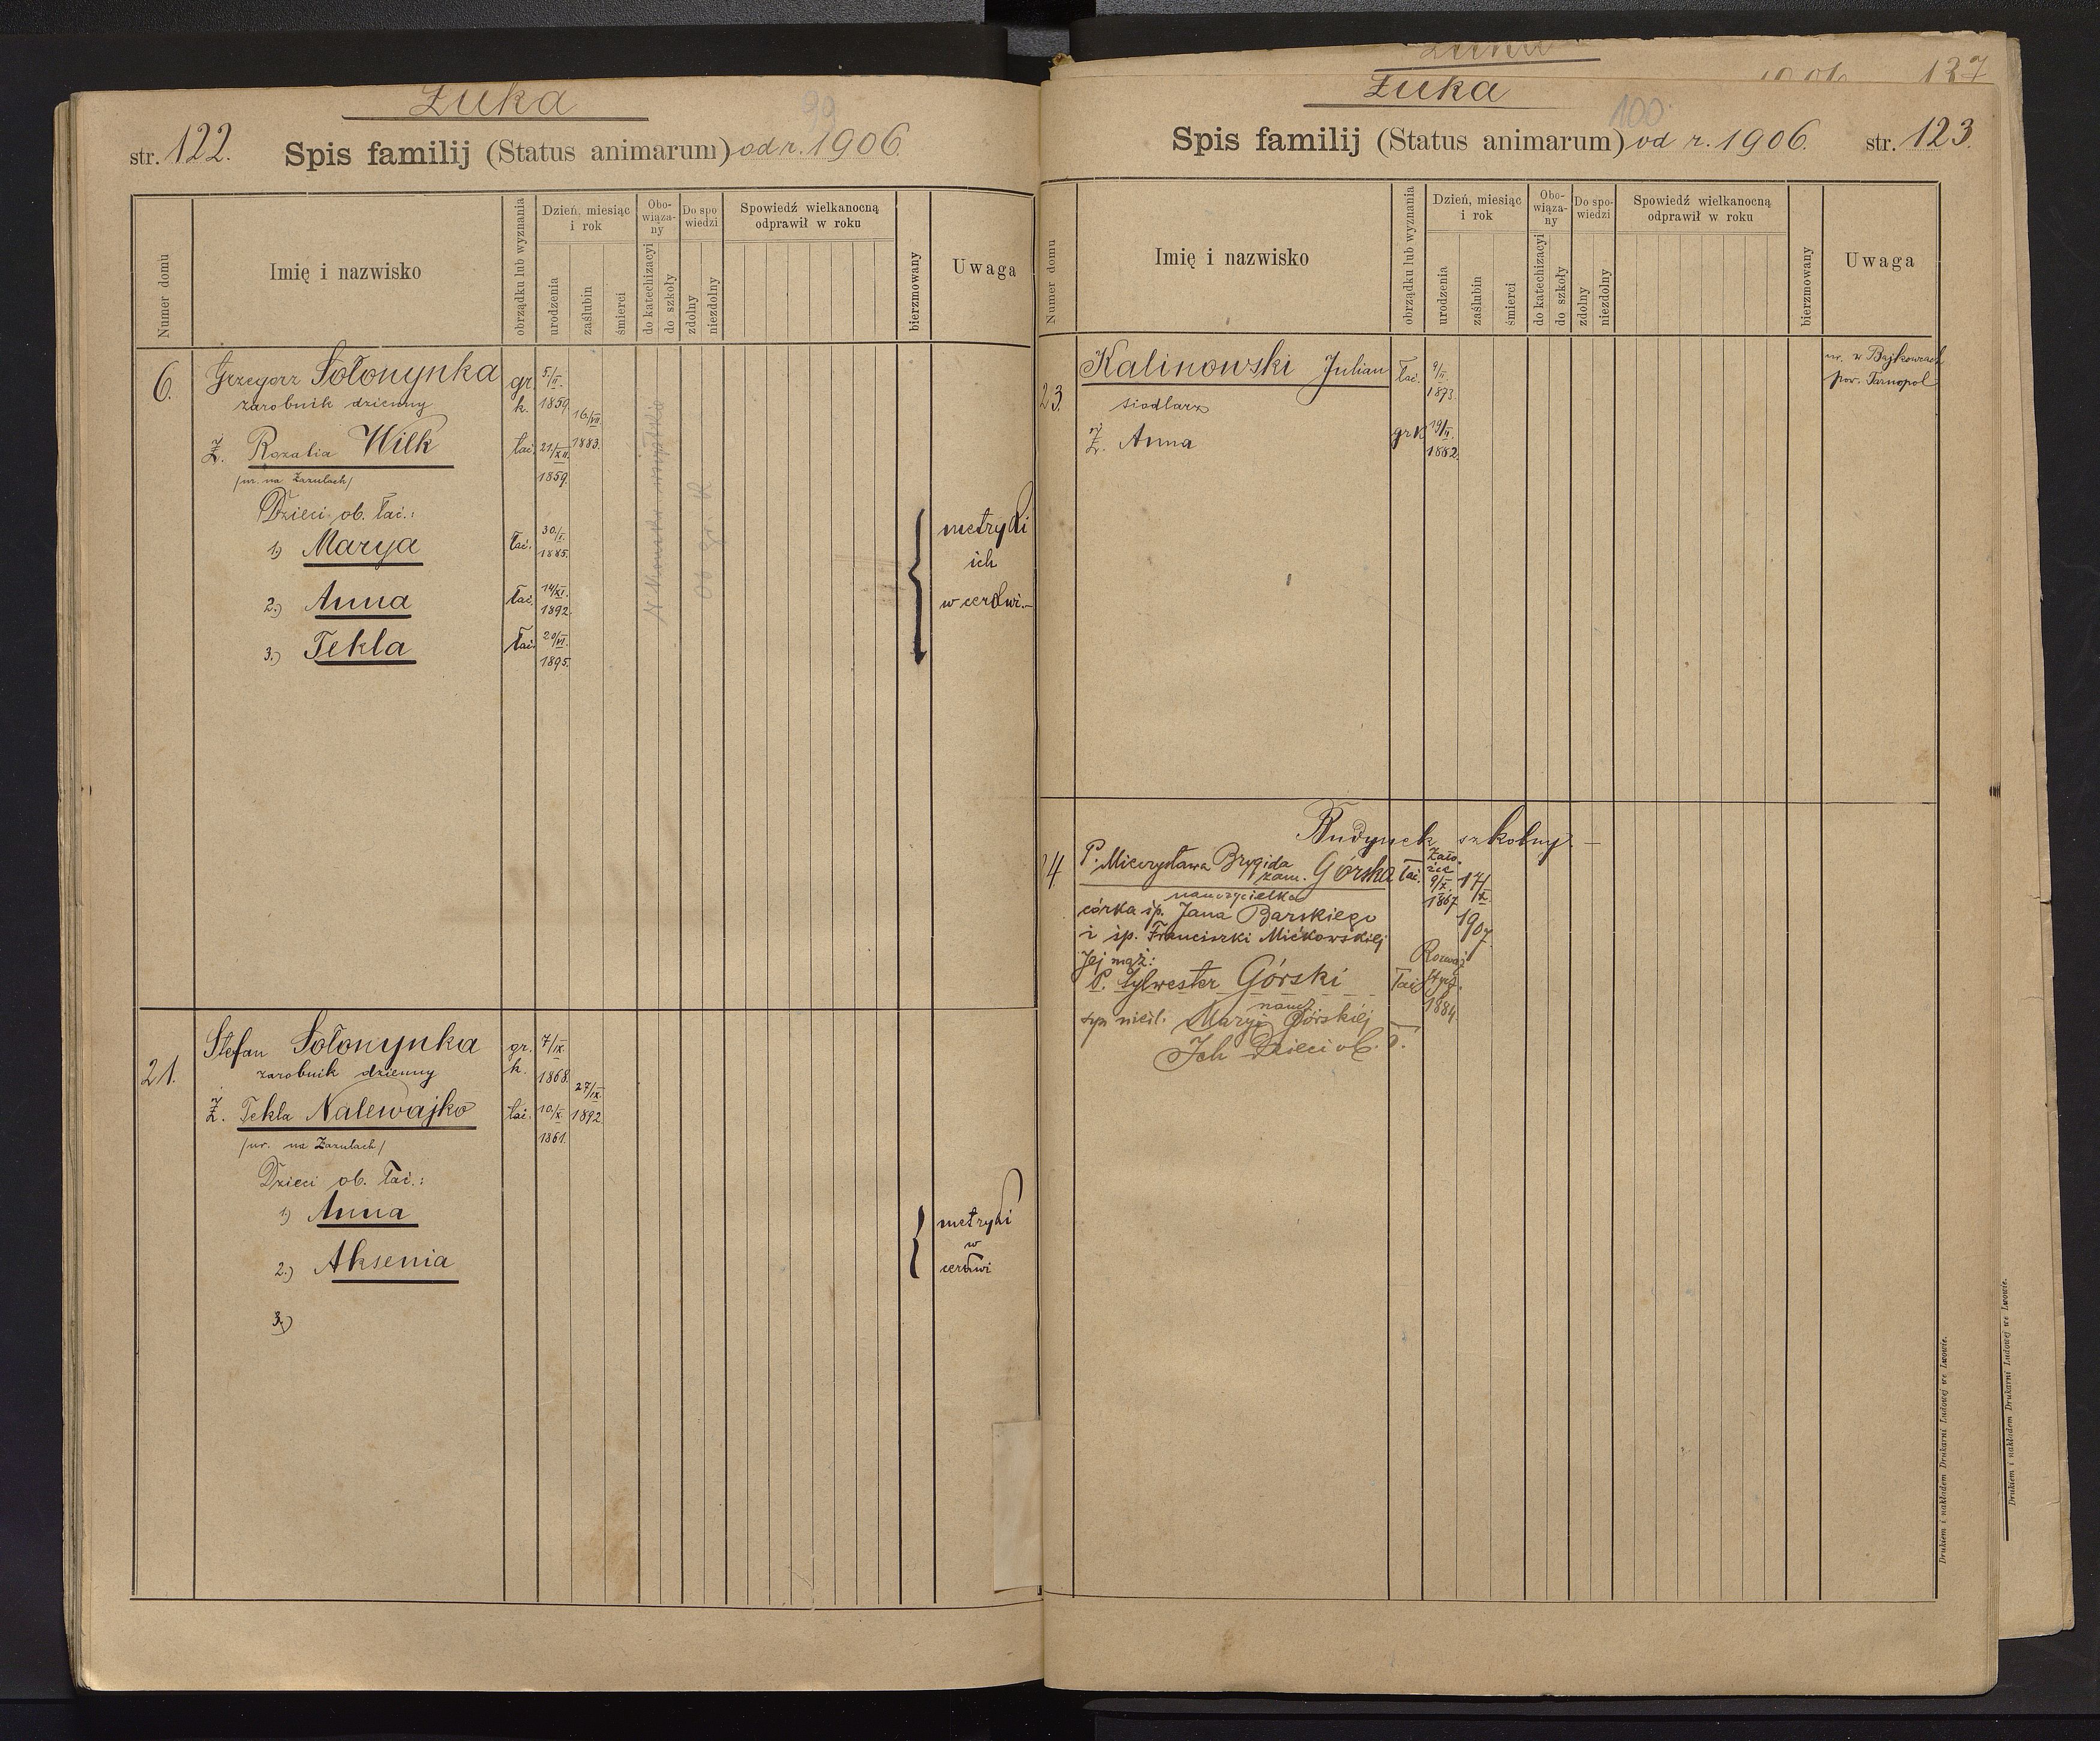 Żuka
99
str. 122. Spis familij (Status animarum) od r. 1906.
Numer domu
Imię i nazwisko
obrządku lub wyznania
Dzień, miesiąc i rok
urodzenia
zaślubin
śmierci
Obo-wiąza-ny
do katechizacyi
do szkoły
Do spo wiedzi
zdolny
niezdolny
Spowiedź wielkanocną odprawił w roku
bierzmowany
Uwaga
6. Grzegorz Sołonynka gr. k. 5/II. 1859.
zarobnik dzienny
16/VII. 1883.
Ż. Rozalia Wilk łac. 21/XII. 1859.
/ur. na Zazulach/
Dzieci ob. łac.:
1) Marya łac. 30/I. 1885.
2.) Anna łac. 14/XI. 1892.
3.) Tekla łac. 20/VI. 1895.
metryki
ich
w cerkwi.
ob gr K
21. Stefan Sołonynka gr. k. 7/IX. 1868.
zarobnik dzienny
27/IX. 1892.
Ż. Tekla Nalewajko łac. 10/X. 1861.
/ur. na Zazulach/
Dzieci ob. łac.:
1) Anna
2.) Aksenia
3.)
metryki
w
cerkwi
137
Żuka
100
Spis familij (Status animarum) od r. 1906. str. 123.
Numer domu
Imię i nazwisko
obrządku lub wyznania
Dzień, miesiąc i rok
urodzenia
zaślubin
śmierci
Obo-wiąza-ny
do katechizacyi
do szkoły
Do spo-wiedzi
zdolny
niezdolny
Spowiedź wielkanocną odprawił w roku
bierzmowany
Uwaga
23. Kalinowski Julian łac. 9/II. 1873.
siodlarz
ur. w Bajkowcach
pow. Tarnopol
Ż. Anna gr K 19/II. 1882.
Budynek szkolny
24 P. Mieczysława Brygida zam. Górska łac. Zało-żce 9/X. 1867 17/X. 1907
nauczycielka
córka śp. Jana Barskiego
i śp. Franciszki Mićkowskiej
Jej mąż:
P. Sylwester Górski łac.
1884
syn nieśl. Maryi Górskiej
Ich Dzieci ob. ł.
Drukiem i nakładem Drukarni Ludowej we Lwowie.
Drukiem i nakładem Drukarni Ludowej we Lwowie.